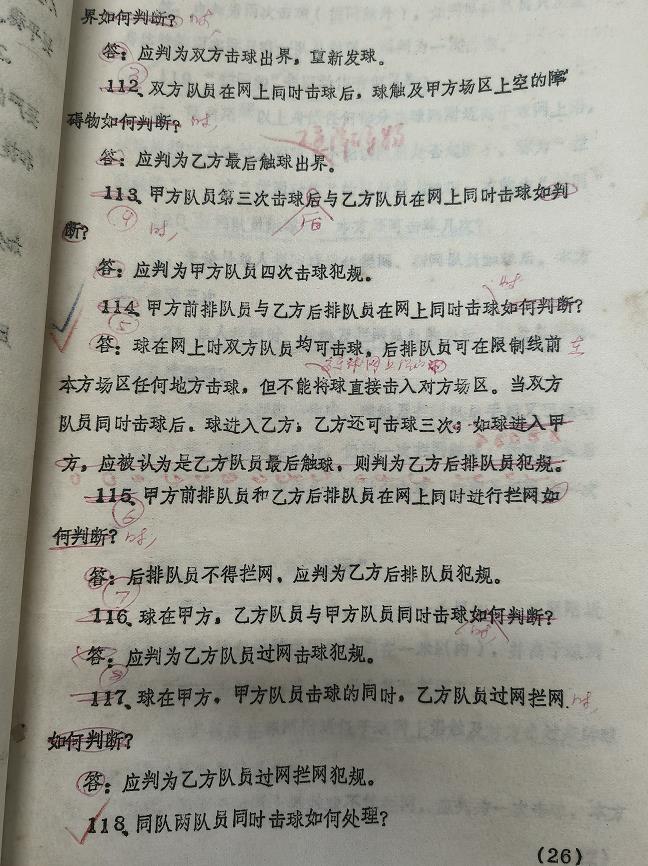 界如何判断? 时
答: 应判为双方击球出界, 重新发球。
③
112、双方队员在网上同时击球后, 球触及甲方场区上空的障
碍物如何判断? 时,
答: 应判为乙方最后触球出界。
113、甲方队员第三次击球后与乙方队员在网上同时击球如何判
④ 后
断? 时,
答: 应判为甲方队员四次击球犯规。
时
114、甲方前排队员与乙方后排队员在网上同时击球如何判断?
⑤
答: 球在网上时双方队员均可击球, 后排队员可在限制线前
本方场区任何地方击球, 但不能将球直接击入对方场区。当双方
队员同时击球后, 球进入乙方, 乙方还可击球三次; 如球进入甲
方, 应被认为是乙方队员最后触球, 则判为乙方后排队员犯规。
115、甲方前排队员和乙方后排队员在网上同时进行拦网如
⑥
何判断? 时,
答: 后排队员不得拦网, 应判为乙方后排队员犯规。
⑦
116、球在甲方, 乙方队员与甲方队员同时击球如何判断?
时,
答: 应判为乙方队员过网击球犯规。
⑧
117、球在甲方, 甲方队员击球的同时, 乙方队员过网拦网 时,
如何判断?
答: 应判为乙方队员过网拦网犯规。
118、同队两队员同时击球如何处理?
(26)